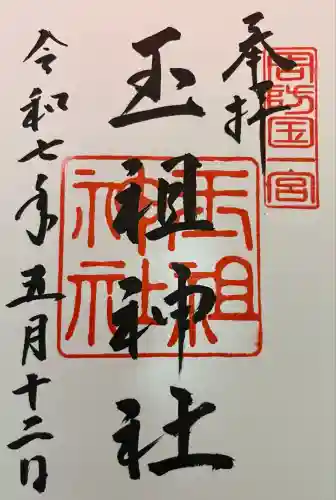 奉拝
周防国一宮
玉祖神社
玉祖神社
令和七年五月十二日